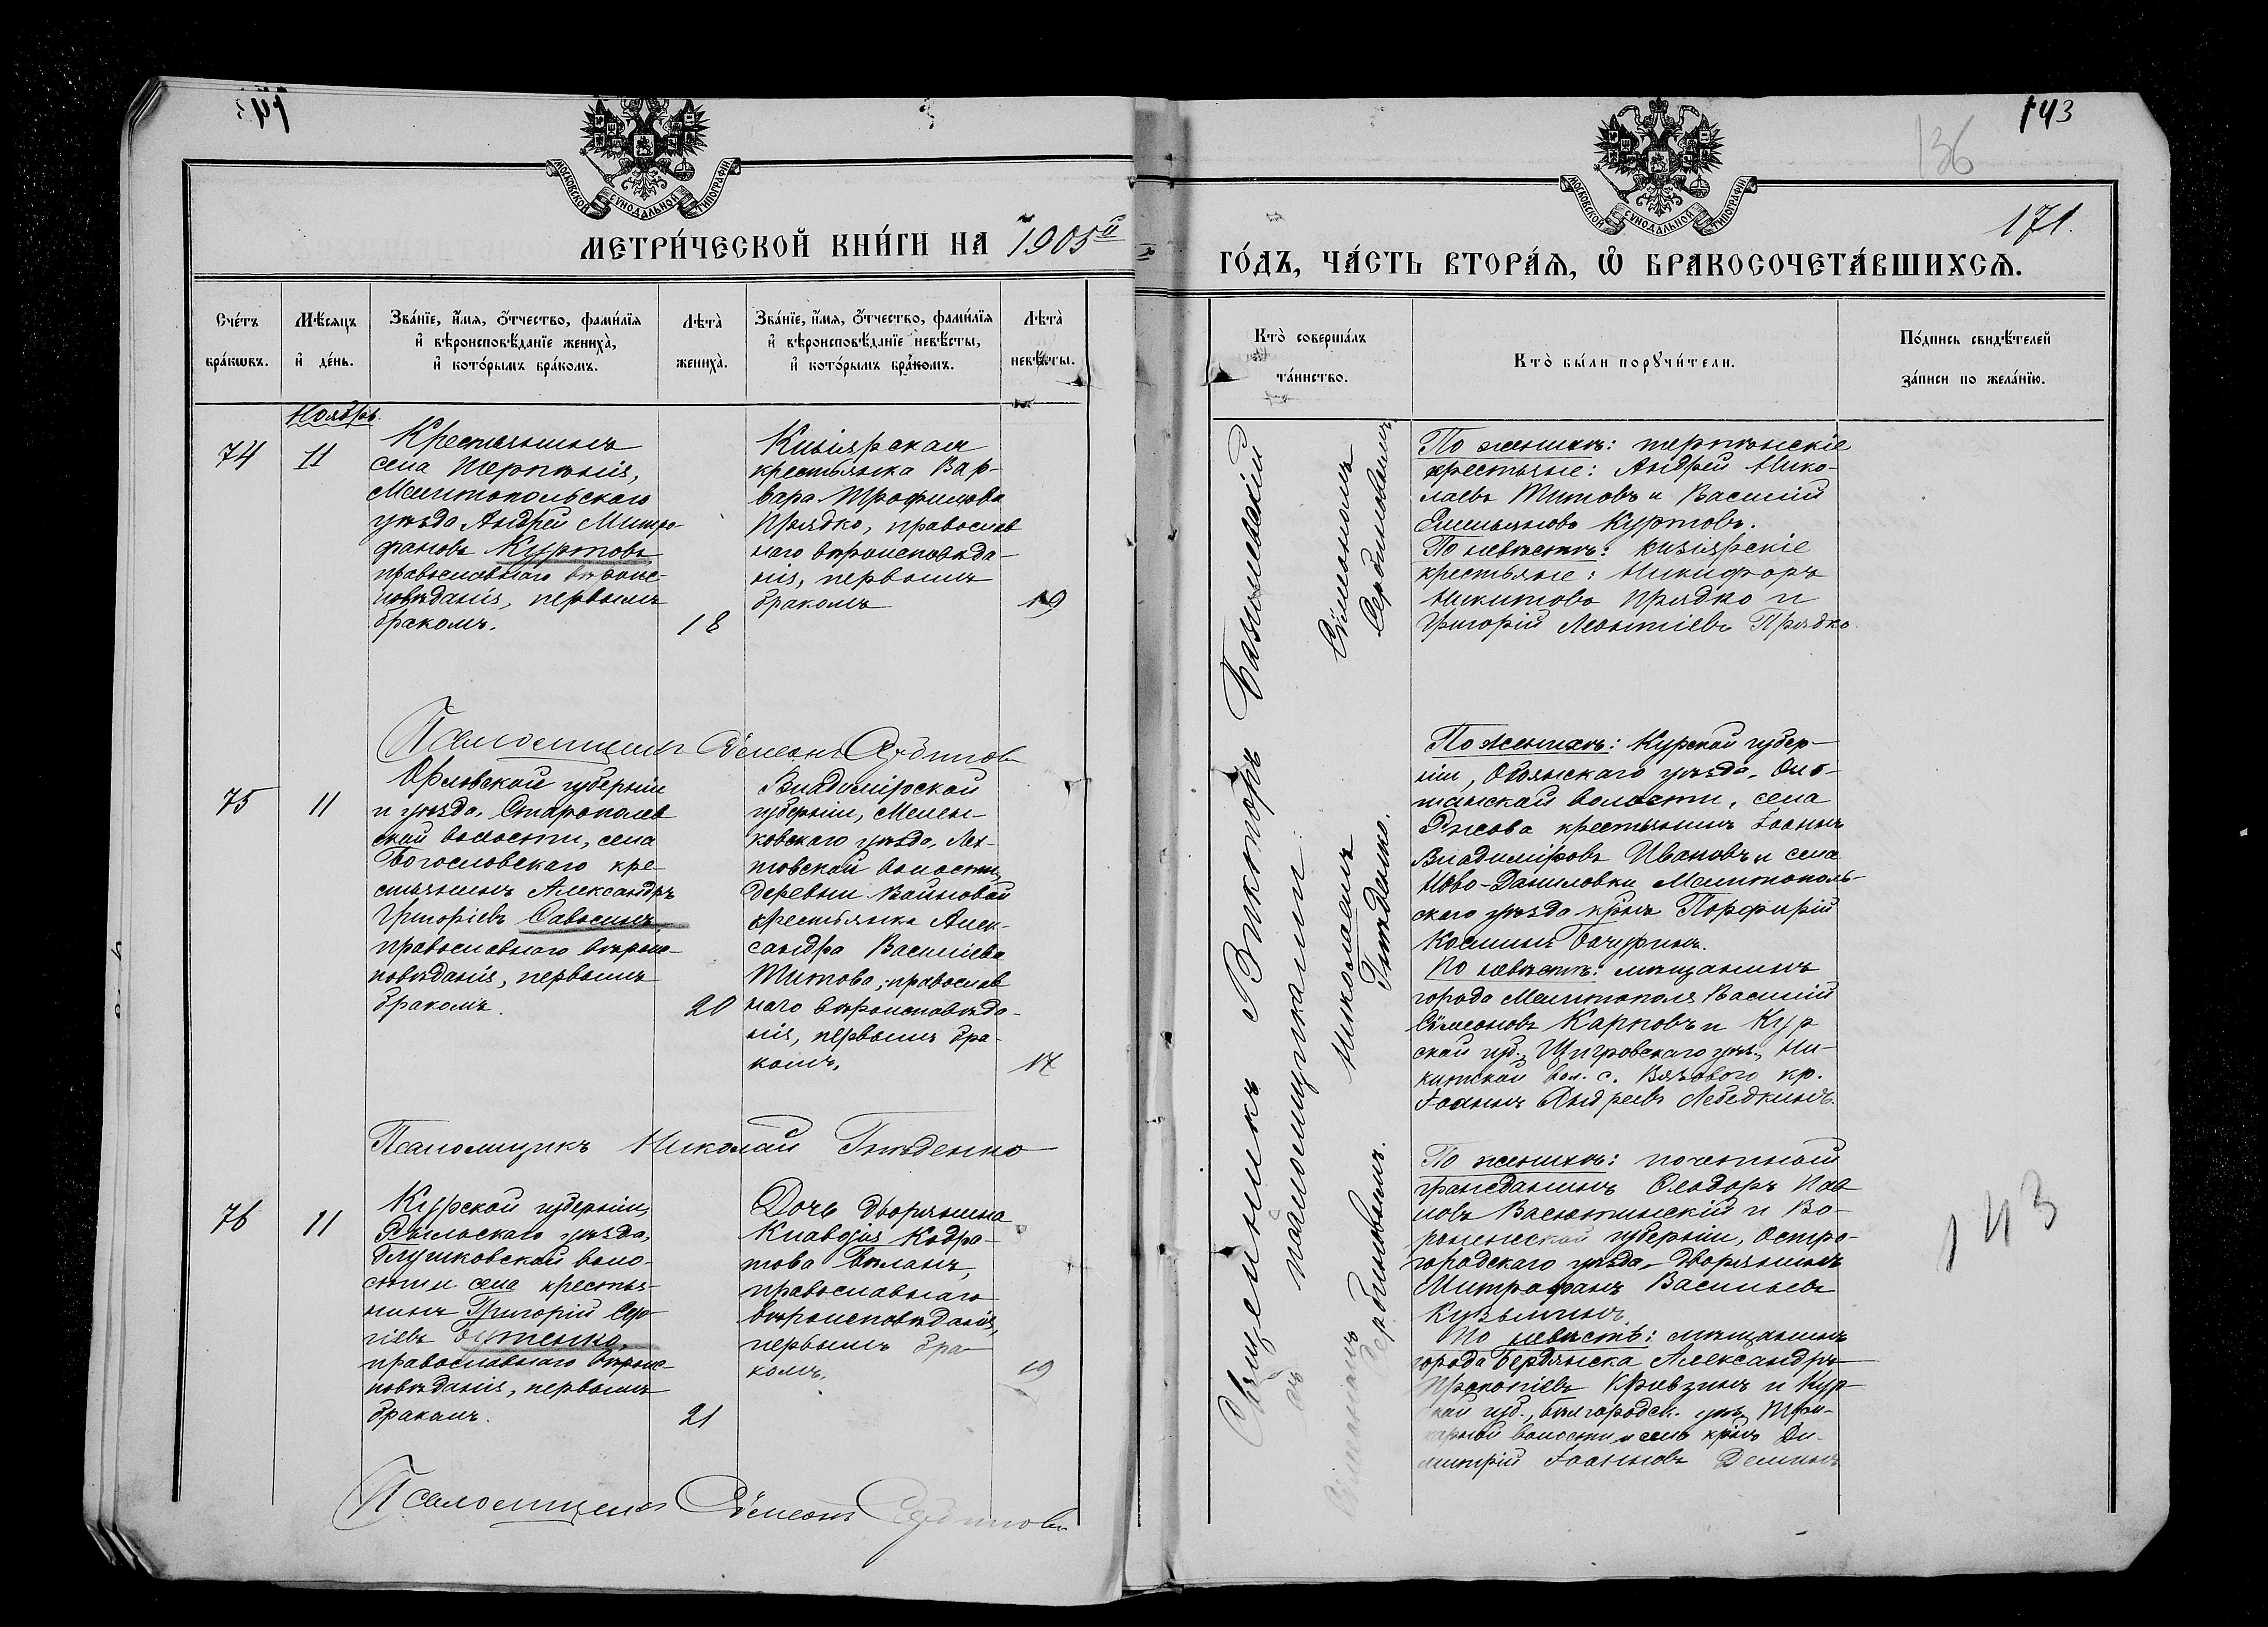 143
136
171.
МОСКОВСКОЙ СѴНОДАЛЬНОЙ ТИПОГРАФІИ
МОСКОВСКОЙ СѴНОДАЛЬНОЙ ТИПОГРАФІИ
МЕТРИ́ЧЕСКОЙ КНИ́ГИ НА 1905й
ГО́ДЪ, ЧА́СТЬ ВТОРА́Ѧ, Ѽ БРАКОСОЧЕТА́ВШИХСѦ.
Сче́тъ бра́кѡвъ.
Мѣ́сѧцъ и҆ де́нь.
Зва́нїе, и҆́мѧ, ѻ҆́тчество, фами́лїѧ
и҆ вѣроисповѣ́данїе жениха̀,
и҆ кото́рымъ бра́комъ.
Лѣта̀ жениха̀.
Зва́нїе, и҆́мѧ, ѻ҆́тчество, фами́лїѧ
и҆ вѣроисповѣ́данїе невѣ́сты,
и҆ кото́рымъ бра́комъ.
Лѣта̀ невѣ́сты.
Кто̀ соверша́лъ
та́инство.
Кто̀ бы́ли порꙋчи́тели.
По́дпись свидѣ́телей
за́писи по жела́нїю.
Ноябрь.
74
11
Крестьянинъ
села Терпѣнія,
Мелитопольскаго
уѣзда Андрей Митро-
фановъ Куртовъ
православнаго вѣроис-
повѣданія, первымъ
бракомъ.
18
Кизіярская
крестьянка Вар-
вара Трофимова
Прядко, православ
наго вѣроисповѣда-
нія, первымъ
бракомъ
19
По женихѣ: терпѣнскіе
крестьяне: Андрей Нико-
лаевъ Титовъ и Василій
Емельяновъ Куртовъ.
По невѣстѣ: кизіярскіе
крестьяне: Никифоръ
Никитовъ Прядко и
Григорій Леонтіевъ Прядко.
Псаломщикъ Сѵмеонъ
75
11
Орловской губерніи
и уѣзда,
ской волости, села
Богословскаго кре-
стьянинъ Александръ
Григоріевъ Савосинъ
православнаго вѣроис-
повѣданія, первымъ
бракомъ.
20
Владимірской
губерніи, Мелен-
ковскаго уѣзда, Лях-
товской волости,
деревни Войновой
крестьянка Алек-
сандра Василіева
Титова, православ
наго вѣроисповѣда-
нія, первымъ бра-
комъ.
17
По женихѣ: Курской губер-
ніи, Обоянскаго уѣзда,
волости, села
крестьянинъ Іоаннъ
Владиміровъ Ивановъ и села
Ново-Даниловки Мелитополь-
скаго уѣзда кр-нъ Порфирій
Косминъ Бачуринъ.
По невѣстѣ: мѣщанинъ
города Мелитополя Василій
Сѵмеоновъ Карповъ и Кур
ской губ., Щигровскаго уѣз., Ни-
китской вол. с. Вязового кр.
Іоаннъ Андреевъ Лебедкинъ.
Псаломщикъ Николай Гнѣденко
76
11
Курской губерніи,
Рыльскаго уѣзда,
Глушковской воло-
сти и села крестья-
нинъ Григорій Сер-
гіевъ Бутенко,
православнаго вѣроис-
повѣданія, первымъ
бракомъ.
21
Дочь дворянина
Клавдія Кодра-
това
православнаго
вѣроисповѣданія,
первымъ бра-
комъ.
19
По женихѣ: почетный
гражданинъ Ѳеодоръ Пав
ловъ Васютинскій и Во-
ронежской губерніи, Остро-
городскаго уѣзда, дворянинъ
Митрофанъ Васильевъ
Кузьминъ.
По невѣстѣ: мѣщанинъ
города Бердянска Александръ
Прокопіевъ Кривзинъ и Кур-
ской губ., Бѣлгородск. уѣз.
волости и села кр-нъ Ди-
митрій Іоанновъ Деминъ
Псаломщикъ Сѵмеонъ
Священникъ Викторъ
съ псаломщиками
Сѵмеономъ Сербиновымъ,
Николаемъ Гнѣденко.
Сѵмеономъ Сербиновымъ.
143